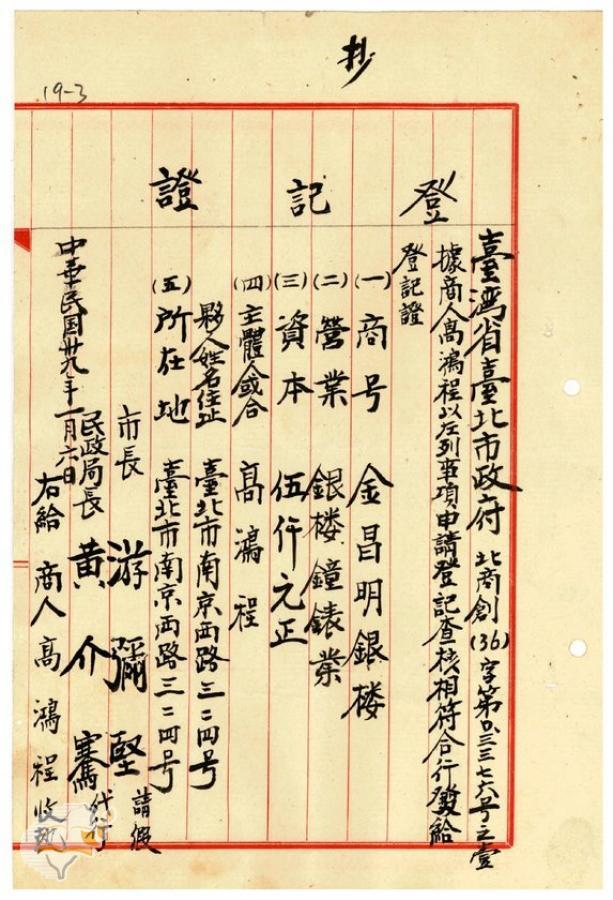 抄
19-3
登記證
臺灣省臺北市政府 北商創(36)字第0三三七六号之壹
據商人高鴻程以左列事項申請登記查核相符合行發給
登記證
(一)商号 金昌明銀楼
(二)營業 銀楼鐘錶業
(三)資本 伍仟元正
(四)主體人或合 高鴻程
夥人姓名住址 臺北市南京西路三二四号
(五)所在地 臺北市南京西路三二四号
市長 游彌堅 請假
民政局長 黃介騫 代行
右給 商人高鴻程收執
中華民国卅九年一月六日